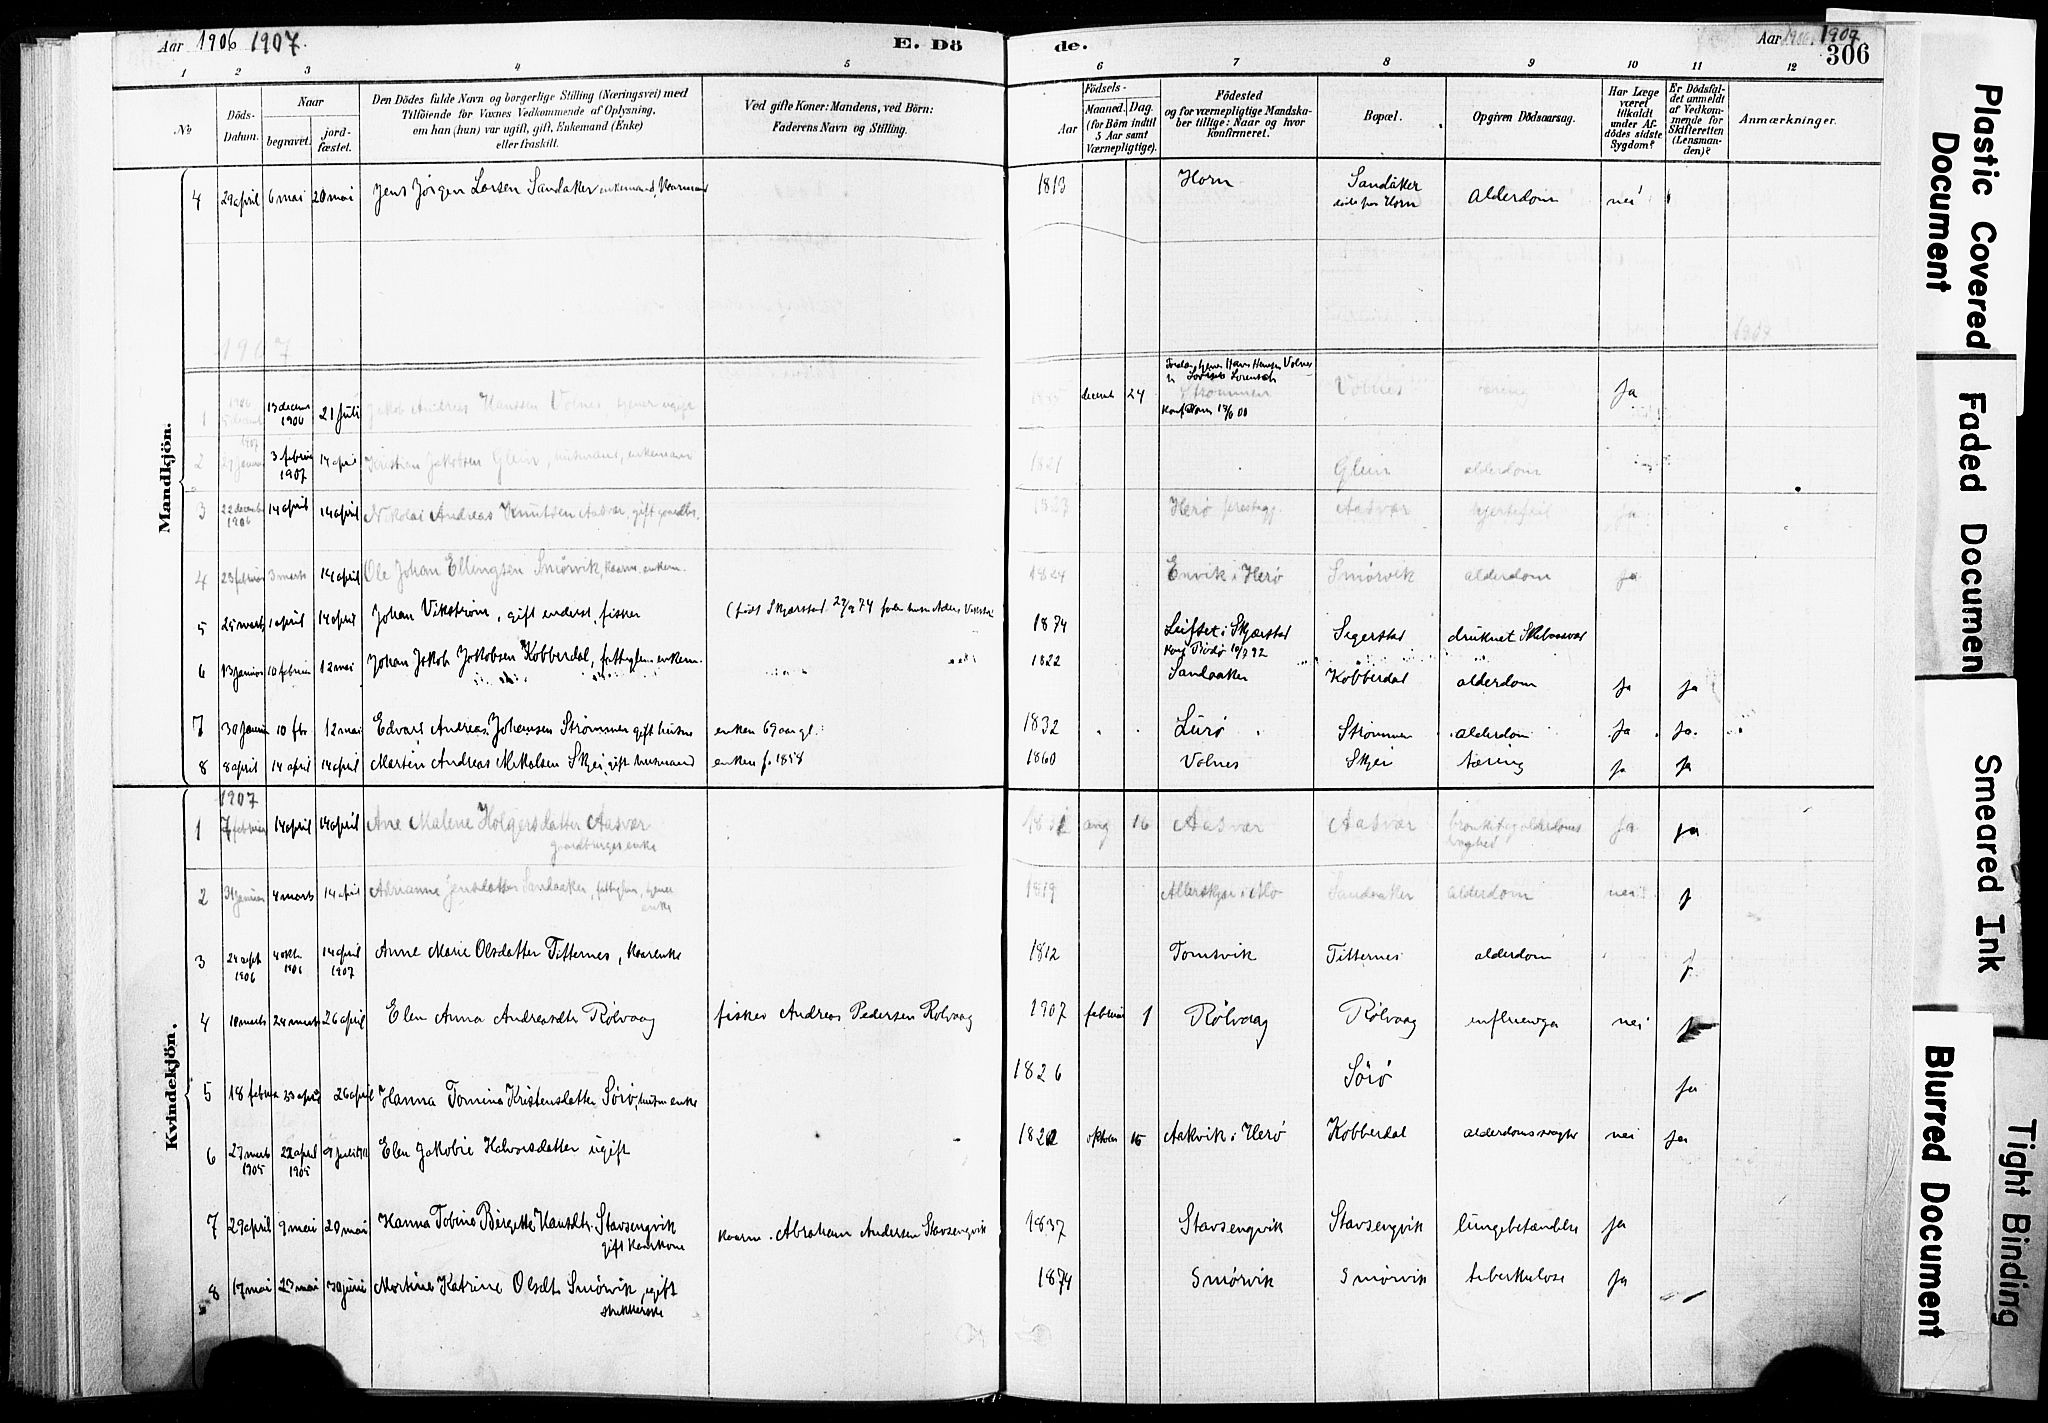 Aar 1906 1907.
E. Dö
de.
Aar 1906. 1907
306
1 2 3 4 5 6 7 8 9 10 11 12
No
Döds-Datum.
Naar
begravet.
jord-fæstet.
Den Dödes fulde Navn og borgerlige Stilling (Næringsvei) med
Tilföiende for Voxnes Vedkommende af Oplysning,
om han (hun) var ugift, gift, Enkemand (Enke)
eller fraskilt.
Ved gifte Koner: Mandens, ved Börn:
Faderens Navn og Stilling.
Födsels-
Aar
Maaned. Dag.
(for Börn indtil
5 Aar samt
Værnepligtige).
Födested
og for værnepligtige Mandska-
ber tillige: Naar og hvor
konfirmeret.
Bopæl.
Opgiven Dödsaarsag.
Har Læge
været
tilkaldt
under Af-
dödes sidste
Sygdom?
Er Dödsfal-
det anmeldt
af Vedkom-
mende for
Skifteretten
(Lensman-
den)?
Anmærkninger.
Mandkjön.
4 29 april 6 mai 20 mai Jens Jörgen Larsen Sandaker enkemand, Kaarmand 1813 Horn Sandåker Alderdom nei
døde paa Horn
1907
1907
1 1906 13 decemb 1906 21 Juli Jakob Andreas Hanssen Volnes ugift decemb 24 Strømmen Volnes tæring Ja
Hans Hansen Volnes
Konf Dønnes
2 1907 27 januar 3 februar 1907 14 april Kristian Jakobsen Glein, husmand, enkemann 1821 Glein alderdom
3 22 decemb 1906 14 april 14 april Nikolai Andreas Knutsen Aasvær, gift gaardbr. 1827 Herø prestegj. Aasvær hjertefeil ja
4 23 februar 3 marts 14 april Ole Johan Ellingsen Smørvik, Kaarm. enkem. 1824 Envik i Herø Smørvik alderdom ja
5 25 marts 1 april 14 april Johan Vikstrøm, gift inderst, fisker (født Skjærstad 1874 i Skjærstad Segerstad druknet
Konf Bodø
6 13 januar 10 februar 12 mai Johan Jakob Jakobsen Kobberdal, fattiglem enkem. 1822 Sandaaker Kobberdal alderdom ja ja
7 30 januar 10 fbr 12 mai Edvard Andreas Johansen Strømmen gift husm enken 69 aar gl. 1832 Lurø Strømmen alderdom ja ja
8 8 april 14 april 14 april Martin Andreas Nikolsen Skjei, gift husmand enken f. 1858 1860 Volnes Skjei tæring ja ja
Kvindekjön.
1907
1 7 februar 14 april 14 april Ane Malene Holgersdatter Aasvær aug 16 Aasvær Aasvær bronkit og alderdoms ja ja
gaardbruger enke
2 31 januar 4 marts 14 april Adrianna Jensdatter Sandaaker, fattiglem, 1819 Sandaaker alderdom nei j
enke
3 24 sept 1906 4 okt. 1906 14 april 1907 Anne Marie Olsdatter Titternes, Kaarenke 1812 Tomsvik Titternes alderdom j
4 10 marts 24 marts 26 april Elen Anna Andreasdtr Rølvaag fisker Andreas Pedersen Rølvaag 1907 februar 1 Rølvaag Rølvaag influenza nei j
5 18 februar 23 april 26 april Hanna Tomina Kristensdatter Sörö, husm enke 1826 Sörö ja
6 27 marts 1905 22 april 1905 Elen Jakobie Halvorsdatter ugift oktober 15 Aakvik i Herø Kobberdal alderdomssvaghet nei ja
7 29 april 9 mai 20 mai Hanna Tobine Birgitte Hansdtr. Stavsengvik kaarm. Abraham Andersen Stavsengvik 1837 Stavsengvik Stavsengvik lungebetændelse ja
gift Kaarkone
8 17 mai 23 mai 30 juni Martine Katrine Olsdtr Smørvik, ugift 1874 Smørvik Smørvik tuberkulose ja
Plastic Covered Document
Faded Document
Smeared Ink
Blurred Document
Tight Binding